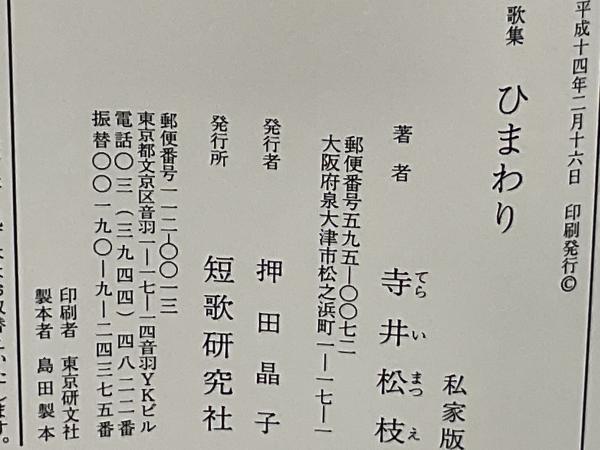 平成十四年二月十六日 印刷発行©
歌集 ひまわり
私家版
著者 寺井松枝
てらいまつえ
郵便番号五九五―〇〇七二
大阪府泉大津市松之浜町一―一七―一
発行者 押田晶子
発行所 短歌研究社
郵便番号一一二―〇〇一三
東京都文京区音羽一―一七―一四音羽YKビル
電話〇三(三九四四)四八二二番
振替〇〇一九〇―九―二四三七五番
印刷者 東京研文社
製本者 島田製本